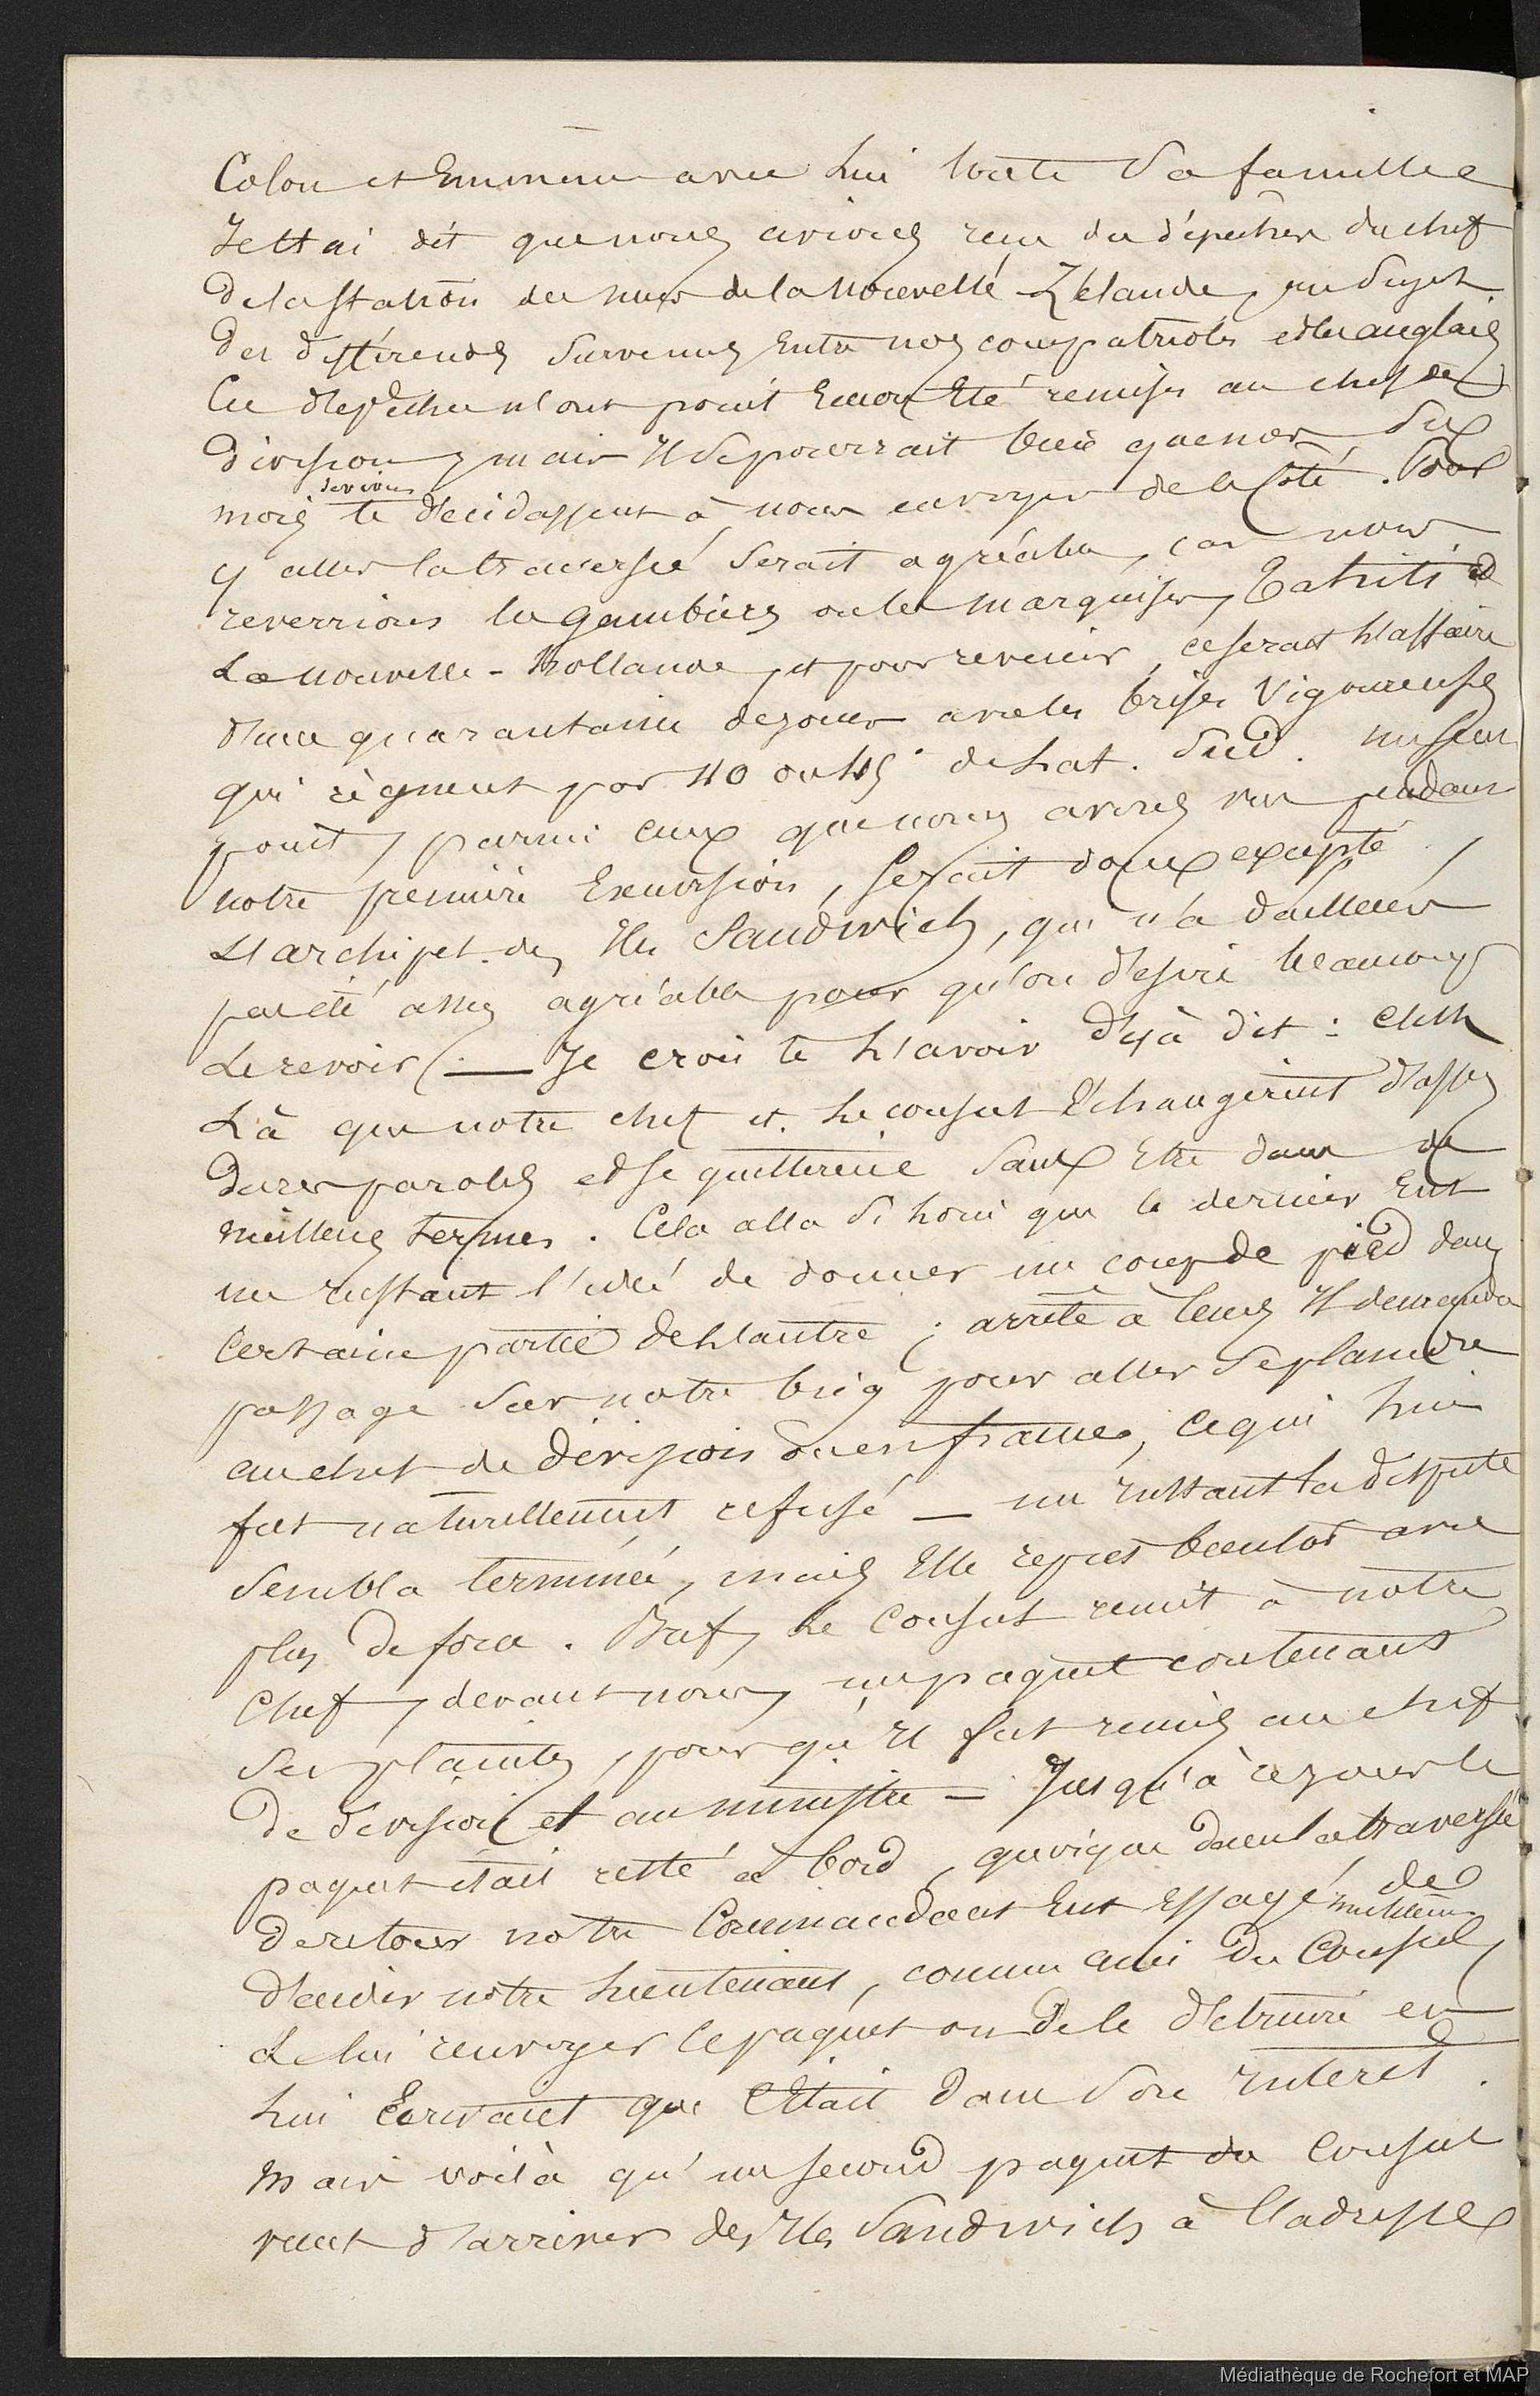 Colon et Emmène avec lui toute Sa famille
Je t'ai dit que nous avions reçu des dépêches du chef
De la Station des mers de la Nouvelle-Zélande, au Sujet
Des différends Survenus Entre nos compatriotes et les anglais
Ces dépêches n'ont point Encore Eté remises au chef de
Division, mais Il Se pourrait bien que nos Six
mois de vivres le décidassent à nous envoyer de ce Côté. Pour
y aller la traversée Serait agréable, car nous
reverrions les Gambiers ou les Marquises, Tahiti et
La Nouvelle-Hollande, et pour revenir, ce serait l'affaire
d'une quarantaine de jours avec les brises Vigoureuses
qui règnent par 40 ou 45° de Lat. Sud. un seul
point, parmi ceux que nous avons vus pendant
notre première Excursion, Serait donc excepté,
L'archipel des Iles Sandwich, qui n'a d'ailleurs
pas été assez agréable pour qu'on désire beaucoup
Le revoir. — Je crois te l'avoir déjà dit : c'est
Là que notre chef et le consul Echangèrent d'assez
Dures paroles et se quittèrent Sans Etre dans de
meilleurs termes. Cela alla Si loin que le dernier Eut
un instant l'idée de donner un coup de pied dans
Certaine partie de l'autre ; arrêté à temps Il demanda
passage Sur notre brig pour aller Se plaindre
au chef de Division ou en france, ce qui lui
fut naturellement refusé — un instant la dispute
Sembla terminée, mais Elle reprit bientôt avec
plus de force. Bref, le Consul remit à notre
Chef, devant nous, un paquet contenant
Ses plaintes, pour qu'Il fut remis au chef
De division et au ministre — Jusqu'à ce jour le
paquet était resté à bord, quoique dans la traversée
De retour notre Commandant Eut Essayé de
notre lieutenant, comme ami du Consul,
de lui renvoyer le paquet ou de le détruire en
lui Ecrivant que C'Etait dans Son Intérêt.
mais voilà qu'un second paquet du Consul
vient d'arriver des Iles Sandwich à l'adresse
Médiathèque de Rochefort et MAP